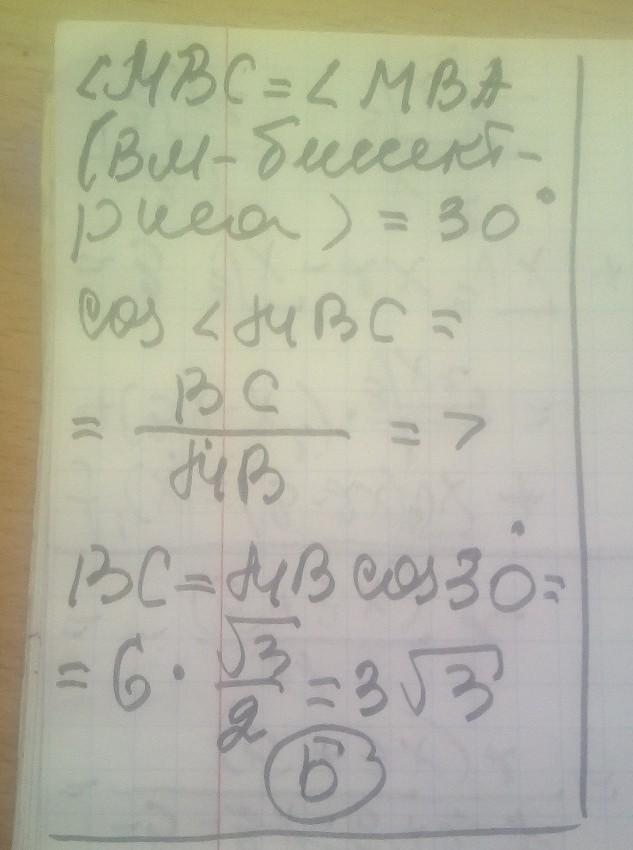 <MBC = < MBA
(BM - бисект-
риса) = 30°
cos < MBC =
= BC / MB =>
BC = MB cos 30° =
= 6 · √3/2 = 3√3
Б